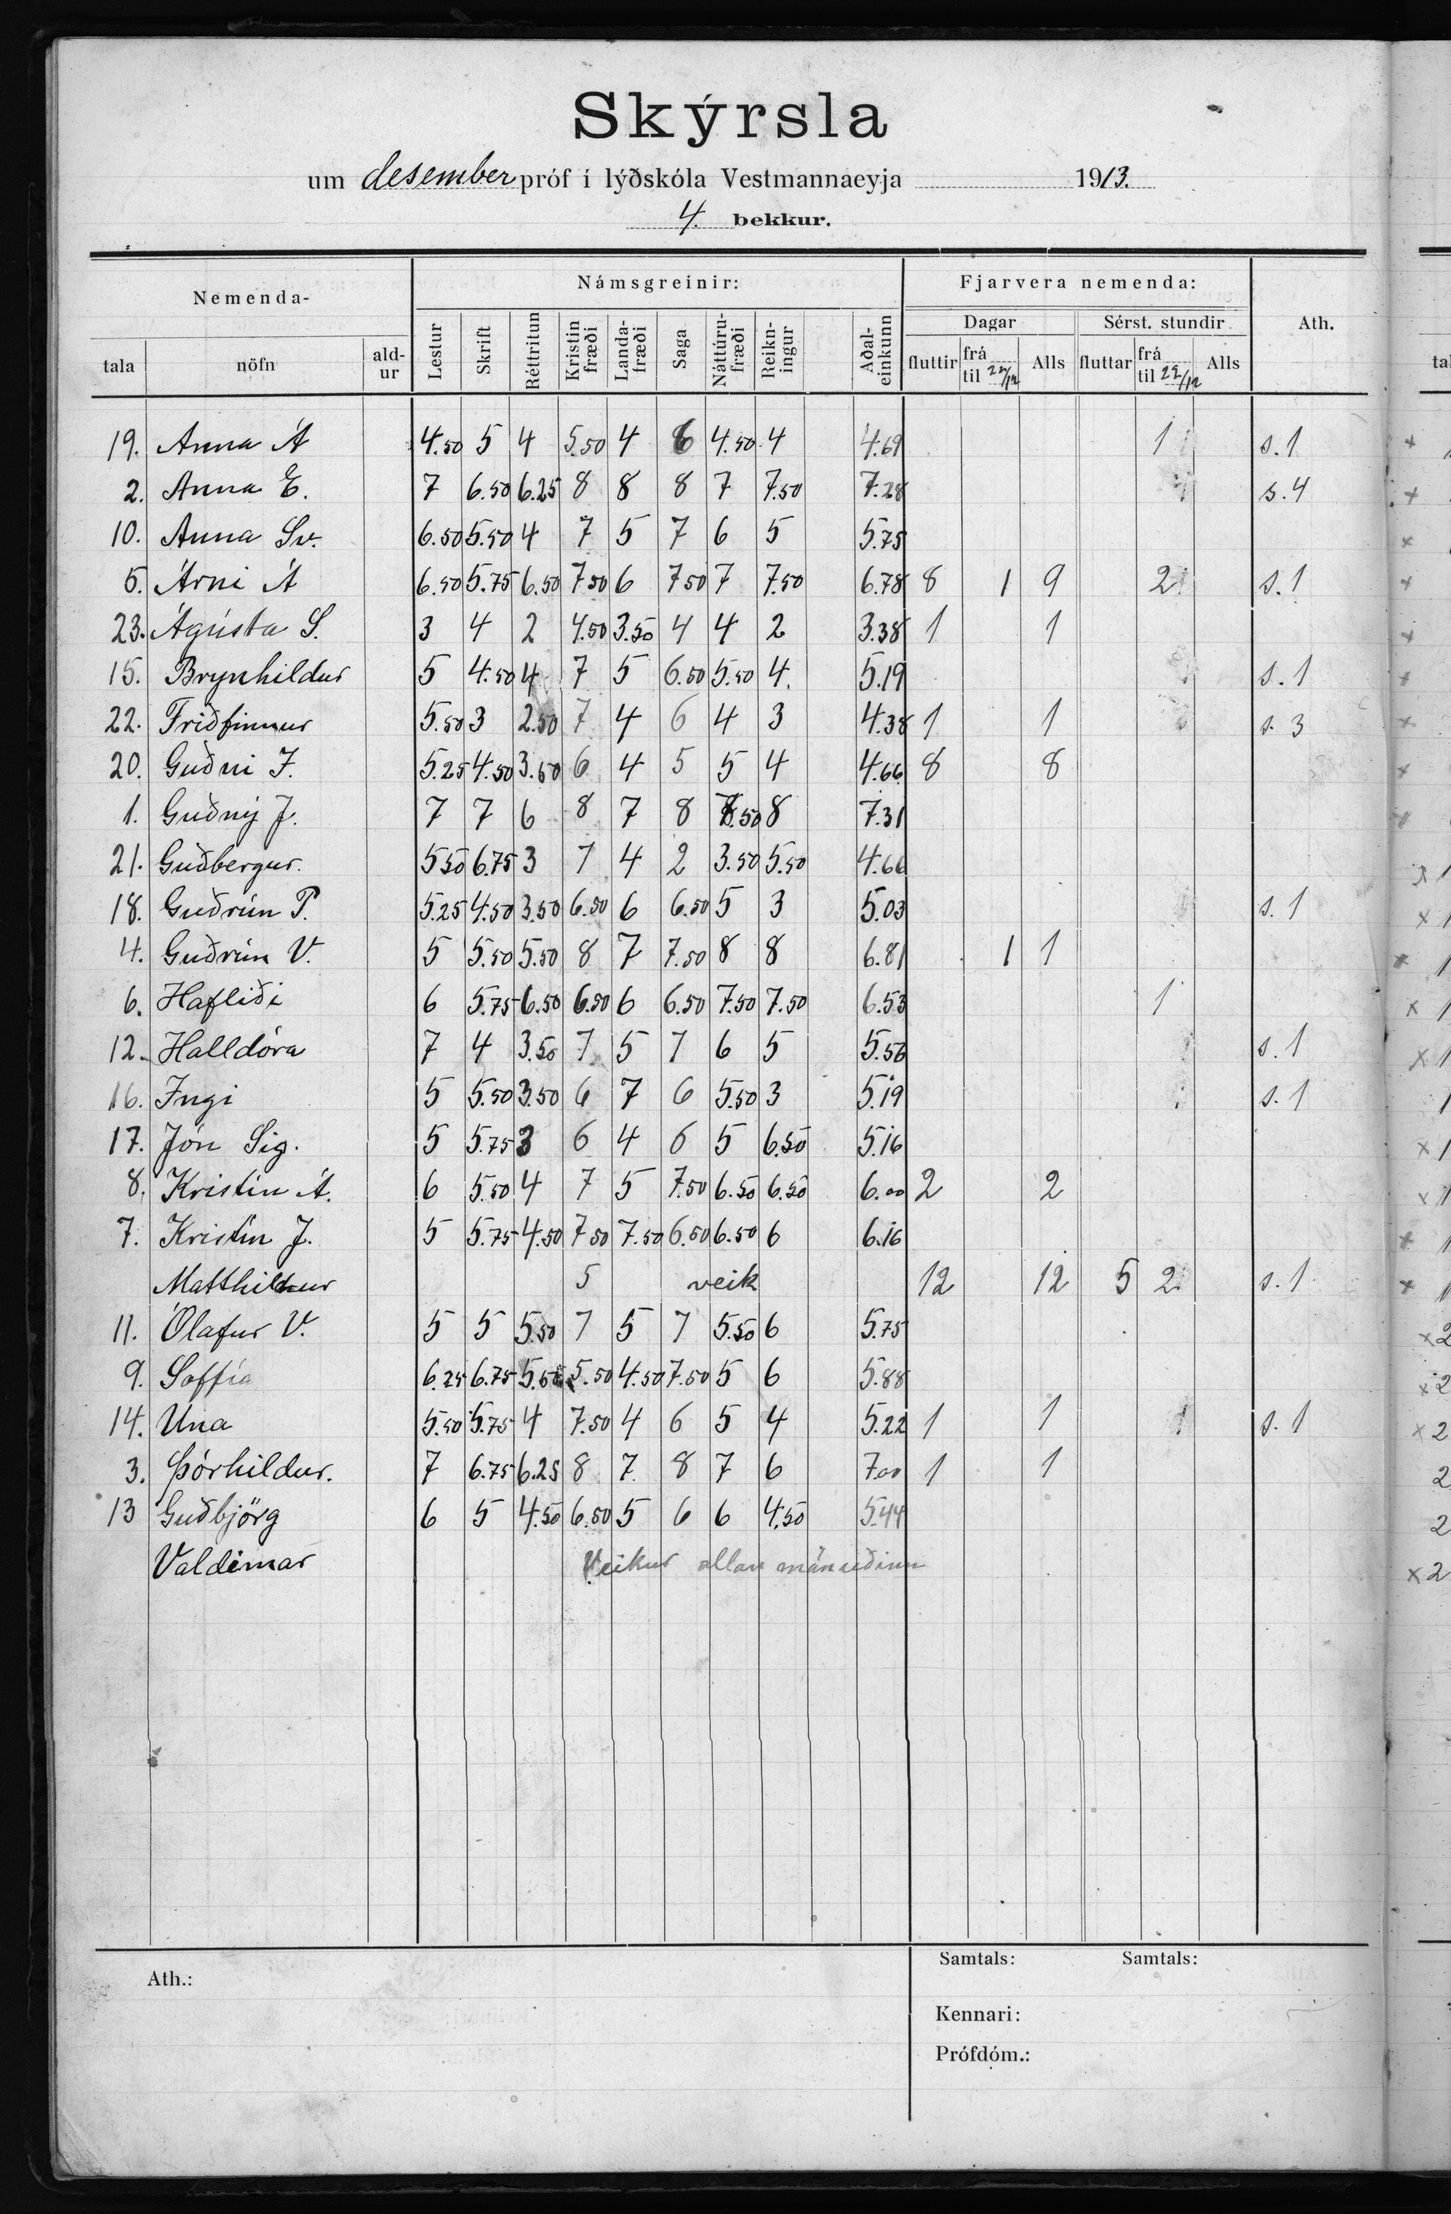 Skýrsla
um desember próf í lýðskóla Vestmannaeyja 1913.
4. bekkur.
Nemenda- Námsgreinir: Fjarvera nemenda: Ath.
Dagar Sérst. stundir
tala nöfn ald-ur Lestur Skrift Réttritun Kristin fræði Landa-fræði Saga Náttúru-fræði Reikn-ingur Aðal-einkunn fluttir frá til 22/12 Alls fluttar frá til 22/12 Alls
19. Anna Á 4.50 5 4 5.50 4 6 4.50 4 4.69 1 s. 1
2. Anna E. 7 6.50 6.25 8 8 8 7 7.50 7.28 s. 4
10. Anna Sv. 6.50 5.50 4 7 5 7 6 5 5.75
5. Árni Á 6.50 5.75 6.50 7.50 6 7.50 7 7.50 6.78 8 1 9 2 s. 1
23. Ágústa S. 3 4 2 4.50 3.50 4 4 2 3.38 1 1
15. Brynhildur 5 4.50 4 7 5 6.50 5.50 4. 5.19 s. 1
22. Friðfinnur 5.50 3 2.50 7 4 6 4 3 4.38 1 1 s. 3
20. Guðni J. 5.25 4.50 3.50 6 4 5 5 4 4.66 8 8
1. Guðný J. 7 7 6 8 7 8 7.50 8 7.31
21. Guðbergur. 5.50 6.75 3 7 4 2 3.50 5.50 4.66
18. Guðrún P. 5.25 4.50 3.50 6.50 6 6.50 5 3 5.03 s. 1
4. Guðrún V. 5 5.50 5.50 8 7 7.50 8 8 6.81 1 1
6. Hafliði 6 5.75 6.50 6.50 6 6.50 7.50 7.50 6.53 1
12. Halldóra 7 4 3.50 7 5 7 6 5 5.56 s. 1
16. Ingi 5 5.50 3.50 6 7 6 5.50 3 5.19 s. 1
17. Jón Sig. 5 5.75 3 6 4 6 5 6.50 5.16
8. Kristín Á. 6 5.50 4 7 5 7.50 6.50 6.50 6.00 2 2
7. Kristín J. 5 5.75 4.50 7.50 7.50 6.50 6.50 6 6.16
Matthildur 5 veik 12 12 5 2 s. 1
11. Ólafur V. 5 5 5.50 7 5 7 5.50 6 5.75
9. Soffía 6.25 6.75 5.50 5.50 4.50 7.50 5 6 5.88
14. Una 5.50 5.75 4 7.50 4 6 5 4 5.22 1 1 1 s. 1
3. Þórhildur. 7 6.75 6.25 8 7 8 7 6 7.00 1 1
13 Guðbjörg 6 5 4.50 6.50 5 6 6 4.50 5.44
Valdimar Veikur allan mánuðinn
Ath.: Samtals: Samtals:
Kennari:
Prófdóm.: